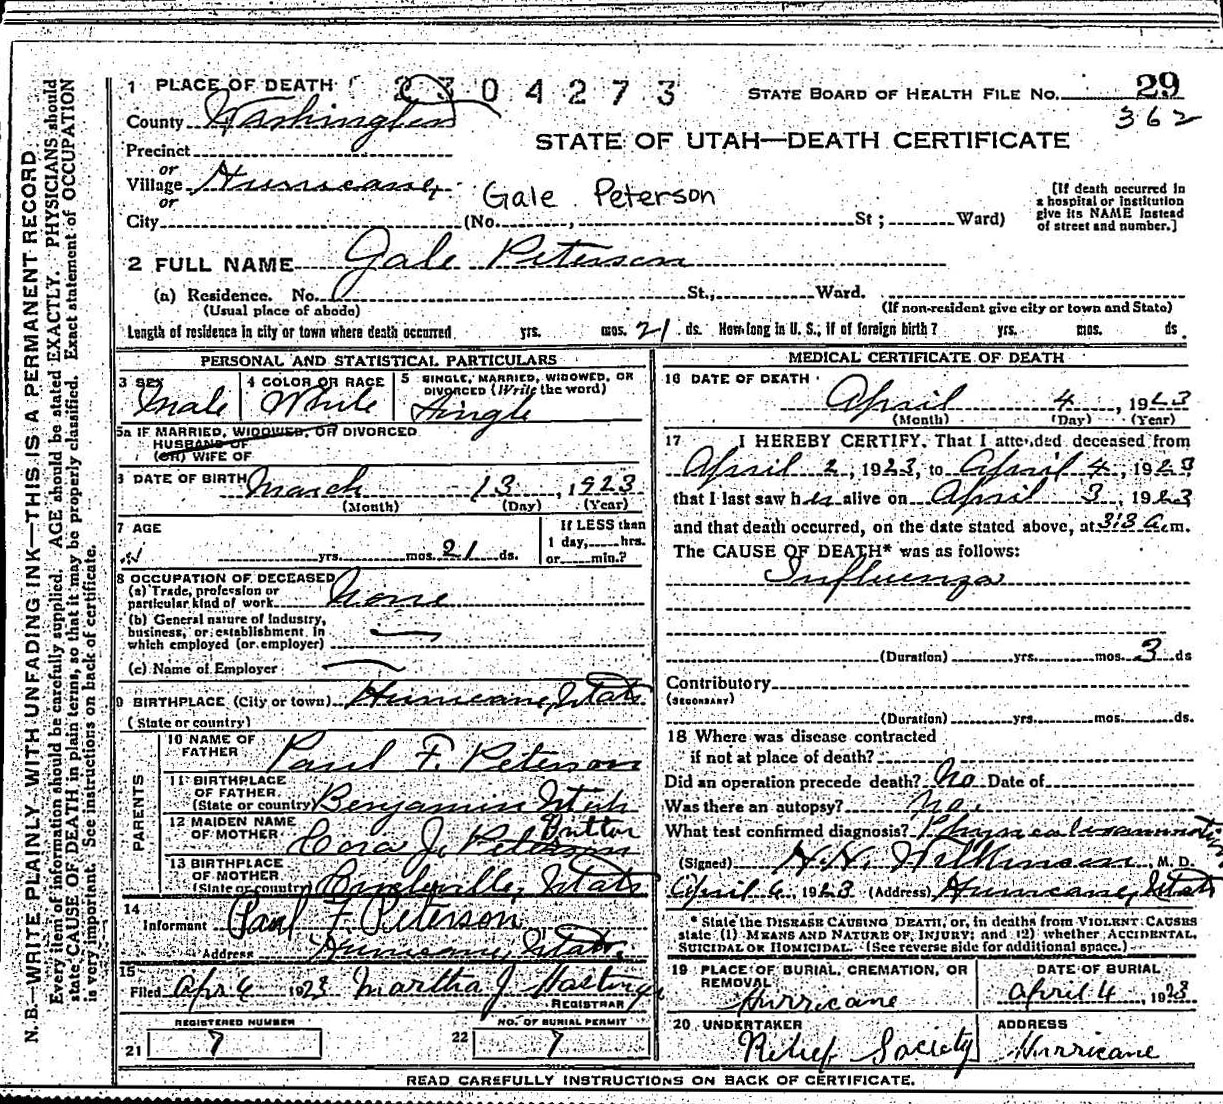 N. B.—WRITE PLAINLY, WITH UNFADING INK—THIS IS A PERMANENT RECORD
Every item of information should be carefully supplied. AGE should be stated EXACTLY. PHYSICIANS should
state CAUSE OF DEATH in plain terms, so that it may be properly classified. Exact statement of OCCUPATION
is very important. See instructions on back of certificate.
1 PLACE OF DEATH 2304273 STATE BOARD OF HEALTH FILE NO. 29
362
County Washington
STATE OF UTAH—DEATH CERTIFICATE
Precinct
or
Village Hurricane
or
Gale Peterson
City (No. , St ; Ward)
(If death occurred in
a hospital or institution
give its NAME instead
of street and number.]
2 FULL NAME Gale Peterson
(a) Residence. No. St., Ward.
(Usual place of abode) (If non-resident give city or town and State)
Length of residence in city or town where death occurred yrs. mos. 21 ds. How long in U. S., if of foreign birth? yrs. mos. ds
PERSONAL AND STATISTICAL PARTICULARS
3 SEX Male
4 COLOR OR RACE White
5 SINGLE, MARRIED, WIDOWED, OR
DIVORCED (Write the word)
Single
5a IF MARRIED, WIDOWED, OR DIVORCED
HUSBAND OF
(OR) WIFE OF
DATE OF BIRTH March 13, 1923
(Month) (Day) (Year)
7 AGE yrs. mos. 21 ds.
If LESS than
1 day, hrs.
or min.?
8 OCCUPATION OF DECEASED
(a) Trade, profession or
particular kind of work None
(b) General nature of Industry,
business, or establishment in
which employed (or employer)
(c) Name of Employer
9 BIRTHPLACE (City or town) Hurricane, Utah
(State or country)
PARENTS
10 NAME OF
FATHER Paul F. Peterson
11 BIRTHPLACE
OF FATHER
(State or country) Benjamin Utah
12 MAIDEN NAME
OF MOTHER Cora J. Peterson
13 BIRTHPLACE
OF MOTHER
(State or country) Utah
14
Informant Paul F. Peterson
Address Hurricane, Utah.
15
Filed Apr 6 1923 Martha J Hastings
REGISTRAR
REGISTERED NUMBER
21 7
NO. OF BURIAL PERMIT
22 7
MEDICAL CERTIFICATE OF DEATH
16 DATE OF DEATH
April 4, 1923
(Month) (Day) (Year)
17 I HEREBY CERTIFY, That I attended deceased from
April 2, 1923, to April 4, 1923
that I last saw him alive on April 3, 1923
and that death occurred, on the date stated above, at 3:3 a.m.
The CAUSE OF DEATH* was as follows:
Influenza
(Duration) yrs. mos. 3 ds
Contributory
(SECONDARY)
(Duration) yrs. mos. ds.
18 Where was disease contracted
if not at place of death?
Did an operation precede death? No Date of
Was there an autopsy? No.
What test confirmed diagnosis? Physical examination
(Signed) H. H. Wilkinson, M. D.
April 6, 1923 (Address) Hurricane, Utah
* State the DISEASE CAUSING DEATH, or, in deaths from VIOLENT CAUSES
state (1) MEANS AND NATURE OF INJURY; and (2) whether ACCIDENTAL,
SUICIDAL OR HOMICIDAL. (See reverse side for additional space.)
19 PLACE OF BURIAL, CREMATION, OR
REMOVAL
Hurricane
DATE OF BURIAL
April 4, 1923
20 UNDERTAKER
Relief Society
ADDRESS
Hurricane
READ CAREFULLY INSTRUCTIONS ON BACK OF CERTIFICATE.